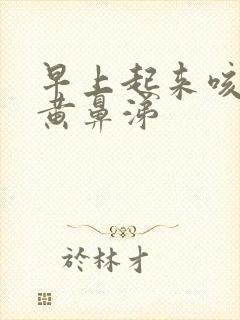 早上起来咳
黄鼻涕
於林才